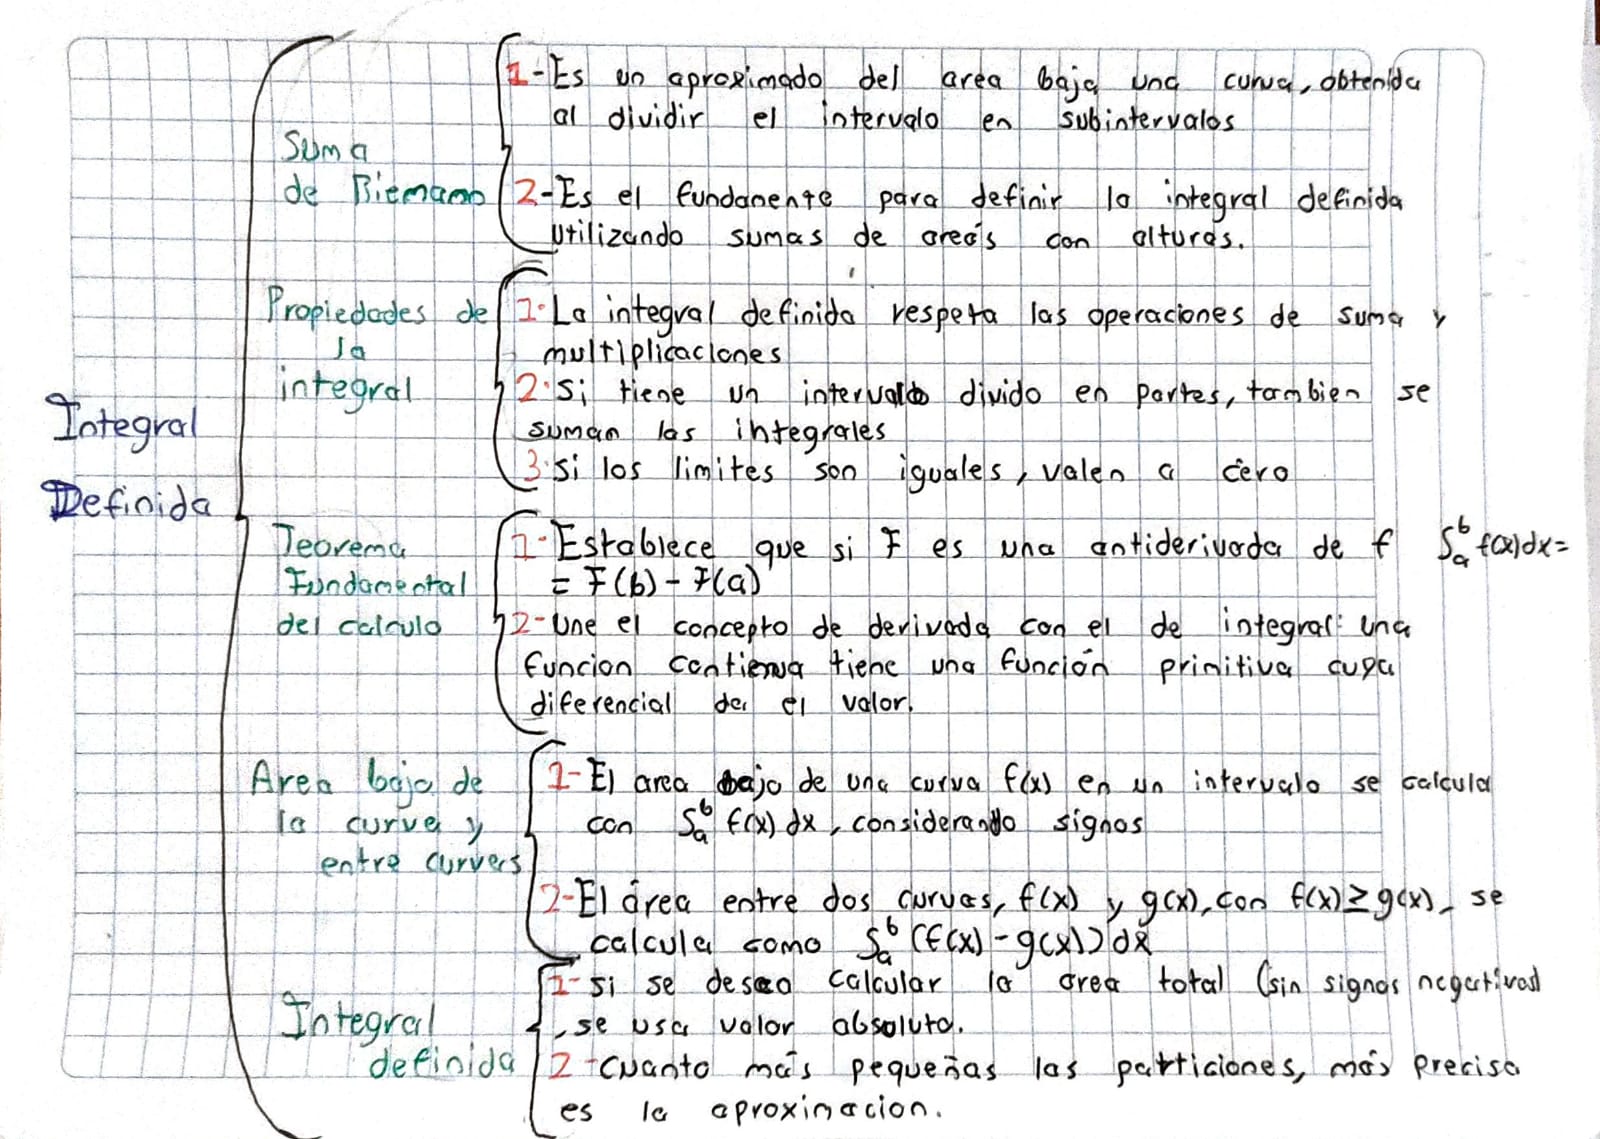 Integral
Definida
Suma
de Riemann
1-Es un aproximado del area baja una curva, obtenida
al dividir el intervalo en subintervalos
2-Es el fundamente para definir la integral definida
utilizando sumas de areás con alturas.
Propiedades de
la
integral
1-La integral definida respeta las operaciones de suma y
multiplicaciones
2.Si tiene un intervalo divido en partes, tambien se
suman las integrales
3.Si los limites son iguales, valen a cero
Teorema
Fundamental
del calculo
1-Establece que si F es una antiderivada de f ∫ₐᵇ f(x)dx=
= F(b) - F(a)
2-Une el concepto de derivada con el de integral: una
funcion contienua tiene una función primitiva cuya
diferencial da el valor.
Area bajo de
la curva y
entre curvers
1-El area bajo de una curva f(x) en un intervalo se calcula
con ∫ₐᵇ f(x) dx, considerando signos
2-El área entre dos curvas, f(x) y g(x), con f(x)≥g(x), se
calcula como ∫ₐᵇ (f(x)-g(x)) dx
Integral
definida
1-si se desea calcular la area total (sin signos negativas)
, se usa valor absoluto.
2-cuanto más pequeñas las particiones, más precisa
es la aproximacion.